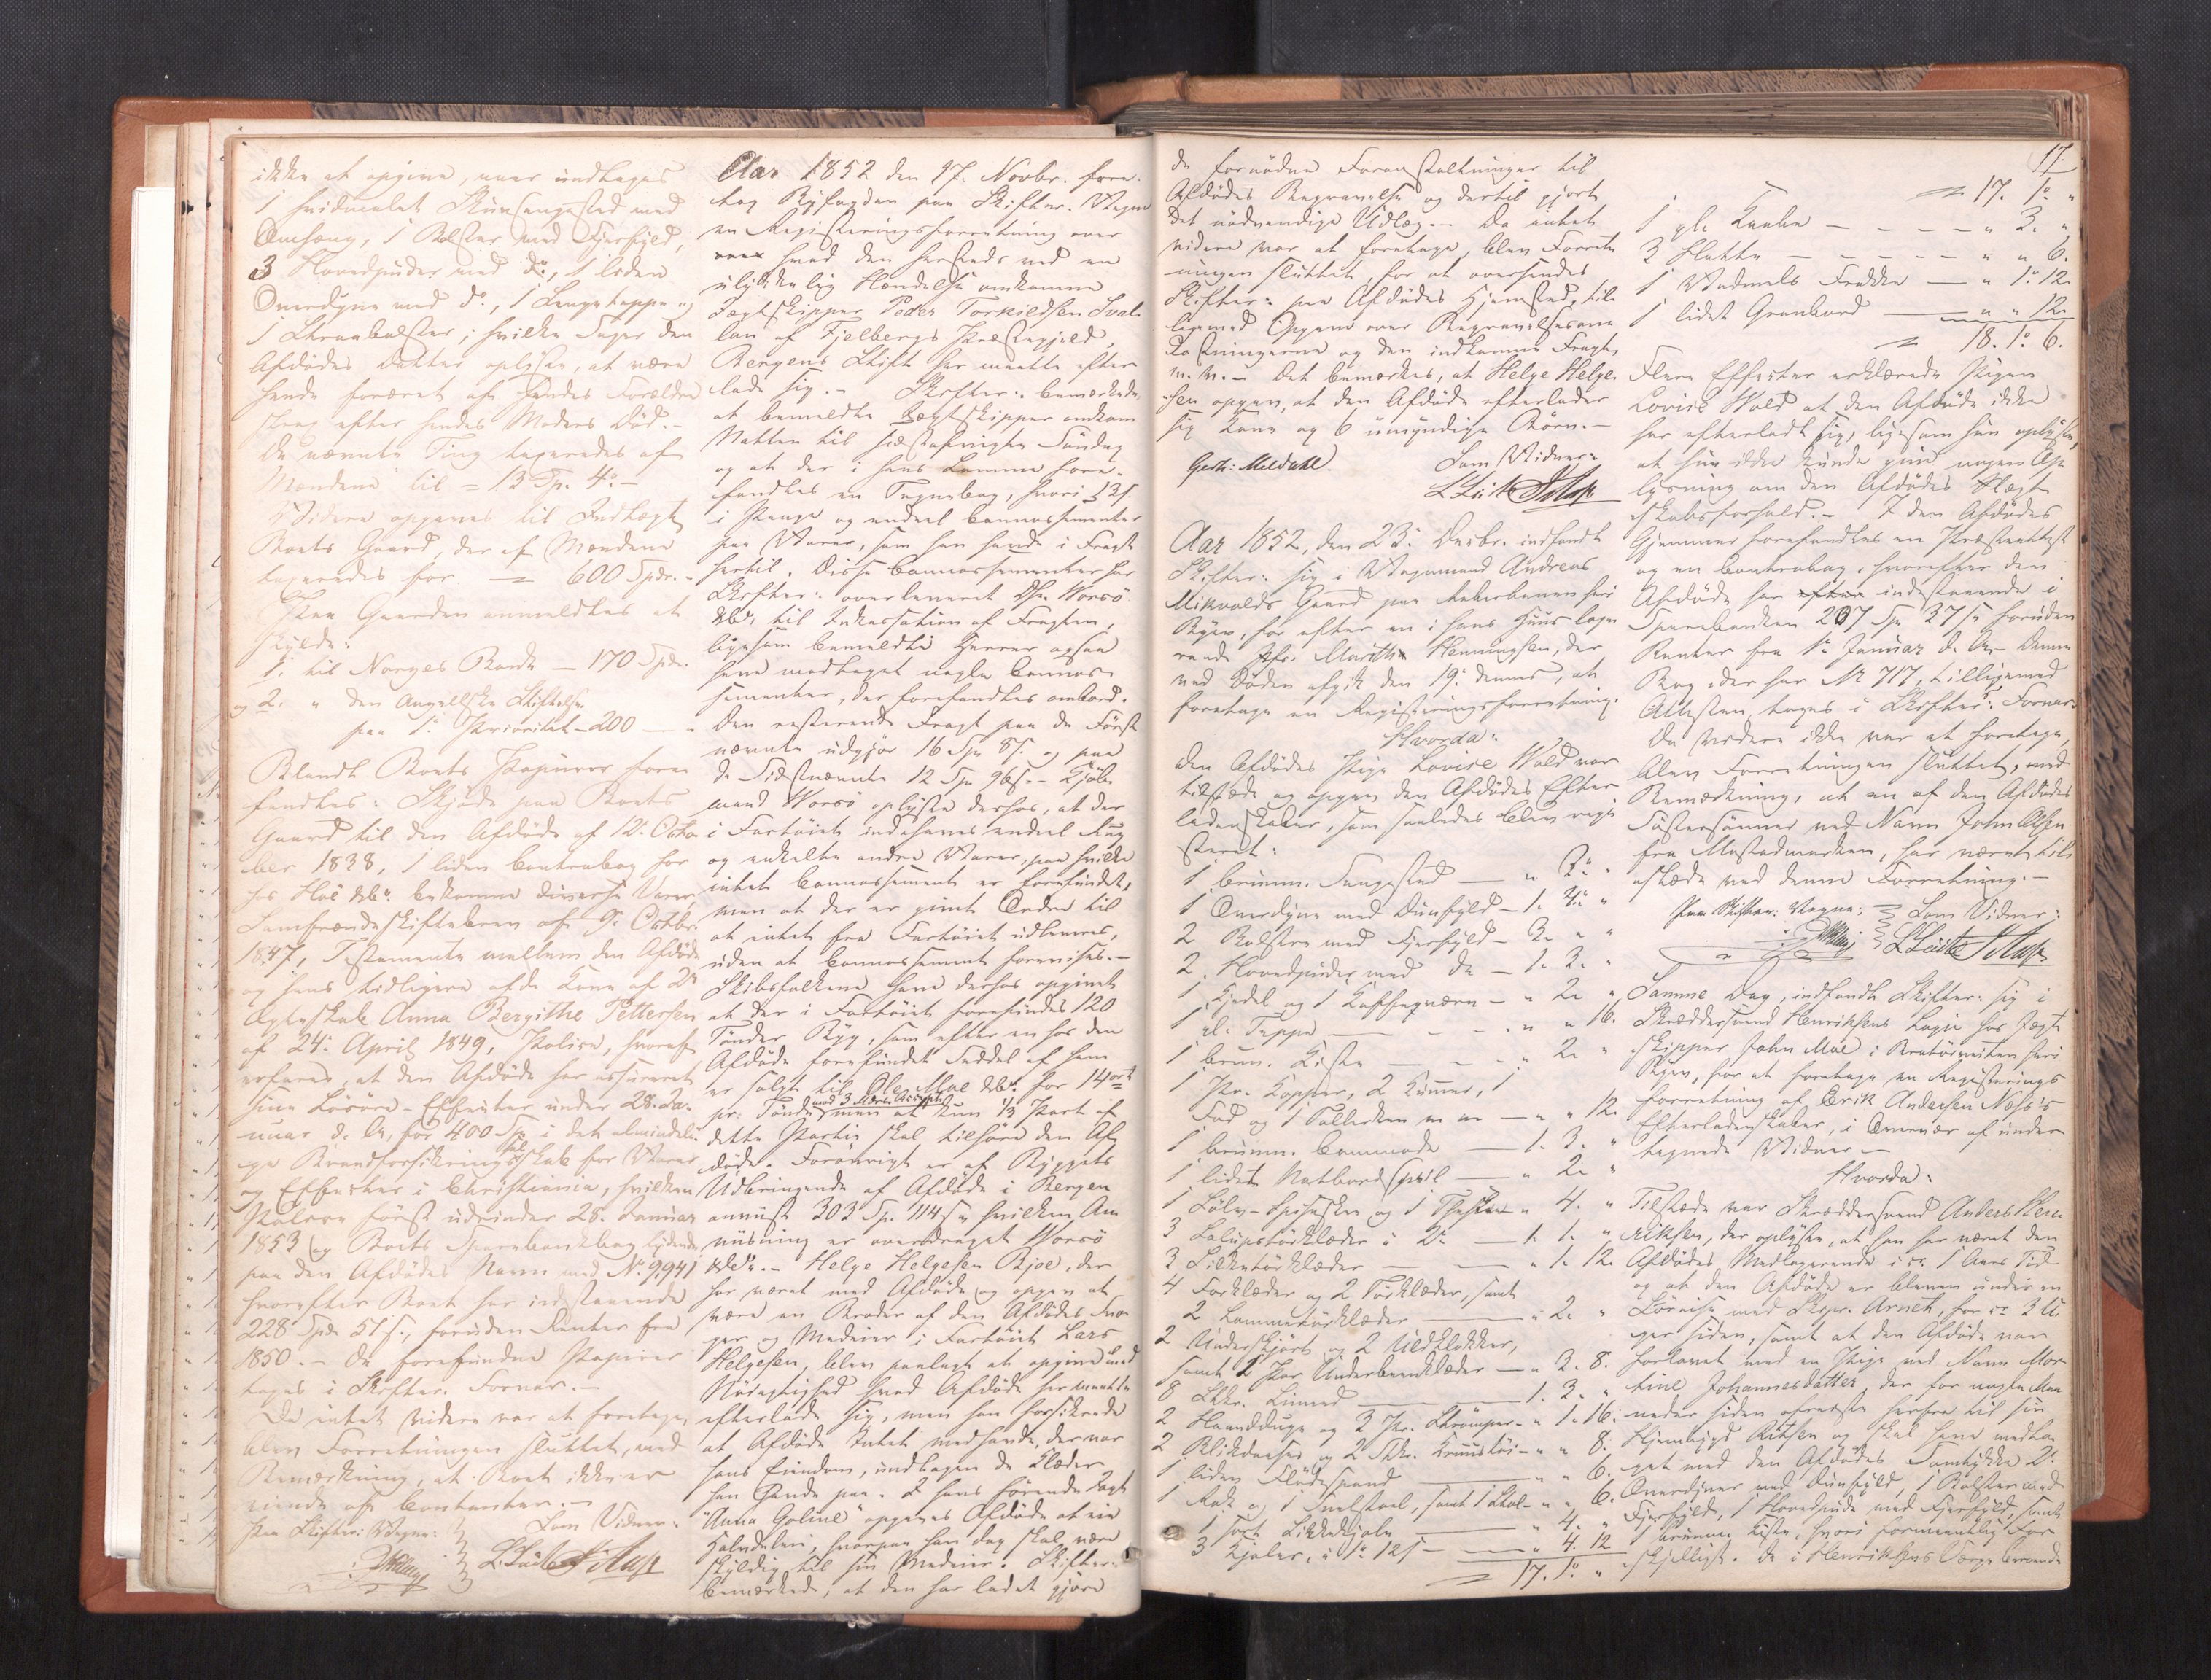 ikke at opgive, naar undtages
1 hvidmalet Skuvsengested med
Omhæng, 1 Bolster med Fjerfyld,
3 Hovedpuder med do, 1 liden
Overdyne med do, 1 Sengeteppe og
1 Straabolster, hvilke Sager den
Afdødes Datter oplyser, at være
hende foræret af hendes Forældre
strax efter hendes Moders Død.-
De nævnte Ting taxeredes af
Mændene til = 13 Sp. 4 -
Videre opgaves til Indtægt
Boets Gaard, der af Mændene
taxeredes for = 600 Spdr.-
Paa Gaarden anmeldtes at
hylde:
1. til Norges Bank - 170 Spdr.
og 2. " den Angellske Stiftelse
paa 1. Prioritet - 200 - "
Blandt Boets Papirer fore-
fandtes: Skjøde paa Boets
Gaard til den Afdøde af 12. Octo-
ber 1838, 1 liden Contrabog for
hos Høe &Co. bekomne diverse Varer,
Samfrændeskiftebrev af 9. Octbr.
1847, Testamente mellem den Afdøde
og hans tidligere afde Kone af 2det
Ægteskab Anna Bergithe Pettersen
af 24. April 1849, Police, hvoraf
erfares, at den Afdøde har assureret
sine Løsøre-Effecter under 28. Ja-
nuar d. A. for 400 Sp. i det almindeli-
ge Brandforsikringsselskab for Varer
og Effecter i Christiania, hvilken
Police først udrinder 28. Januar
1853 og Boets Sparebankbog lydende
paa den Afdødes Navn med No. 9941
hvorefter Boet har indestaaende
228 Spd. 51 s., foruden Renter fra
1850.- De forefundne Papirer
toges i Skifter. Forvar.-
Da intet videre var at foretage,
blev Forretningen sluttet, med
Bemærkning, at Boet ikke er
eiende af Contanter.-
Paa Skifter: Vegne:
Som Vidner:
Aar 1852 den 17. Novbr. fore-
tog Byfogden paa Skifter. Vegne
en Registreringsforretning over
hvad den hersteds ved en
ulykkelig Hændelse omkomne
Jægtskipper Peder Torkildsen Sval-
lan af Fjelbergs Præstegjeld,
Bergens Stift har maatte efter-
lade sig.- Skifter: bemærkede,
at bemeldte Jægtskipper omkom
Natten til sidstafvigte Søndag
og at der i hans Lomme fore-
fandtes en Tegnebog, hvori 3 Sp.
i Penge og endeel Connossementer
paa Varer, som han havde i Fragt
hertil. Disse Connossementer har
Skifter: overleveret Dhr. Worsö
&Co. til Inkassation af Fragten,
ligesom bemeldte Herrer ogsaa
have modtaget nogle Connos-
sementer, der forefandtes ombord.
Den resterende Fragt paa de Først-
nævnte udgjør 16 Sp. 8 s. og paa
de Sidstnævnte 12 Sp. 96 s.- Kjøb-
mand Worsö oplyste derhos, at der
i Fartøiet indehaves endeel Rug
og enkelte andre Varer, paa hvilke
intet Connossement er forefundet,
men at der er givet Ordre til
at intet fra Fartøiet udleveres,
uden at Connossement forevises.-
Skibsfolkene have derhos opgivet
at der i Fartøiet forefindes 120
Tønder Byg, som efter en hos den
Afdøde forefundet Seddel af ham
er solgt til Ole Moe &Co. for 14 ort
pr. Tønde med 3 Mdrs. Accept men at kun 1/3 Part af
dette Parti skal tilhøre den Af-
døde. Forøvrigt er af Byggets
Udbringende af Afdøde i Bergen
anvist 303 Sp. 114 s., hvilken An-
viisning er overdraget Worsö
&Co.- Helge Helgesen Bjoe, der
har været med Afdøde og opgav at
være en Broder af den Afdødes Svo-
ger og Medeier i Fartøiet Lars
Helgesen, blev paalagt at opgive med
Nøiagtighed hvad Afdøde her maatte
efterlade sig, men han forsikrede
at Afdøde Intet medhavde, der var
hans Eiendom, undtagen de Klæder
han havde paa. I hans førende Jagt
"Anna Goline" opgaves Afdøde at eie
Halvdelen, hvorpaa han dog skal være
skyldig til sin Medeier. Skifter:
bemærkede, at den har ladet gjøre
17.
de fornødne Foranstaltninger til
Afdødes Begravelse og dertil gjort
det nødvendige Udlæg.- Da intet
videre var at foretage, blev Forret-
ningen sluttet, for at oversendes
Skifter: paa Afdødes Hjemsted, til-
ligemed Opgave over Begravelsesom-
kostningerne og den indkomne Fragt,
m. v.- Det bemærkes, at Helge Helge-
sen opgav, at den Afdøde efterlader
sig Kone og 6 umyndige Børn.-
Gerh: Meldahl.
Som Vidner:
Aar 1852, den 23. Decbr. indfandt
Skifter: sig i Vognmand Andreas
Mikvolds Gaard paa Aakerbanen her i
Byen, for efter en i hans Huus loge-
rende Jfr. Marith Henningsen, der
ved Døden afgik den 19. dennes, at
foretage en Registreringsforretning.
Hvorda:
den Afdødes Pige Lovise Wold var
tilstede og opgav den Afdødes Efter-
ladenskaber, som saaledes blev regi-
streret:
1 bruunm. Sengested - " 2. "
1 Overdyne med Duunfyld - 1. 4. "
2 Bolstre med Fjerfyld - 3. " "
2 Hovedpuder med do - 1. 2. "
1 Kjedel og 1 Kaffeqværn - " 2. "
1 gl. Teppe - " " 16.
1 bruun. Kiste - " 2. "
1 Pr. Kopper, 2 Kummer, 1
Fad og 1 Tallerken m m - " " 12.
1 bruunm. Commode - 1. 3. "
1 lidet Natbordspeil - " 2. "
1 Sølv-Spiseskee og 1 Theskee " 4. "
3 Salupstørklæder à 2 - 1. 1. "
3 Silketørklæder - " 1. 12.
4 Forklæder og 2 Tørklæder, samt
2 Lommetørklæder - " 2. "
2 Underskjørt og 2 Uldklokker,
samt 2 Par Underbeenklæder - " 3. 8.
8 Stkr. Linned - 1. 3. "
2 Haandduge og 3 Par Strømper - " 1. 16.
2 Blikdaaser og 2 Stkr. Kruustøi - " " 8.
1 liden Flødespand - " " 6.
1 Rok og 1 Snelstoel, samt 1 Stol - " " 6.
1 sort Silkekjole - " 4. "
3 Kjoler, à 1. 12 s - " 4. 12
= 17. 1. "
= 17. 1. "
1 gl. Kaabe - " 3. "
3 Hatte - " " 6.
1 Vadmels Frakke - " 1. 12.
1 lidet Granbord - " " 12.
= 18. 1. 6.
Flere Effecter erklærede Pigen
Lovise Wold at den Afdøde ikke
har efterladt sig, ligesom hun oplyste,
at hun ikke kunde give nogen Op-
lysning om den Afdødes Slægt-
skabsforhold.- I den Afdødes
Gjemmer forefandtes en Præsteattest
og en Contrabog, hvorefter den
Afdøde har indestaaende i
Sparebanken 207 Sp. 37 s. foruden
Renter fra 1. Januar d. A.- Denne
Bog, der har No 717, tilligemed
Attesten, toges i Skifter: Forvar.
Da Videre ikke var at foretage,
blev Forretningen sluttet, med
Bemærkning, at en af den Afdødes
Søstersønner ved Navn John Olsen
fra Mostadmarken, har været til-
stede ved denne Forretning.-
Paa Skifter: Vegne:
Som Vidner:
Samme Dag, indfandt Skifter: sig i
Skræddersvend Henriksens Logie hos Jægt-
skipper John Moe i Bratørveiten her i
Byen, for at foretage en Registrerings-
forretning af Erik Andersen Næss's
Efterladenskaber, i Overvær af under-
tegnede Vidner-
Hvorda:
Tilstede var Skræddersvend Anders Hen-
riksen, der oplyste, at han har været den
Afdødes Medlogerende i ca. 1 Aars Tid
og at den Afdøde er bleven under en
Løbreise med Skipr. Arneh, for ca. 3 U-
ger siden, samt at den Afdøde var
forlovet med en Pige ved Navn Mar-
tine Johannesdatter, der for nogle Maa-
neder siden afreiste herfra til sin
Hjembygd Ritsen og skal have medta-
get med den Afdødes Samtykke 2
Overdyner med Duunfyld, 1 Bolster med
Fjerfyld, 1 Hovedpude med Fjerfyld, samt
1 bruunm. Kiste, hvori formeentlig For-
skjelligt. De i Henriksens Værge beroende